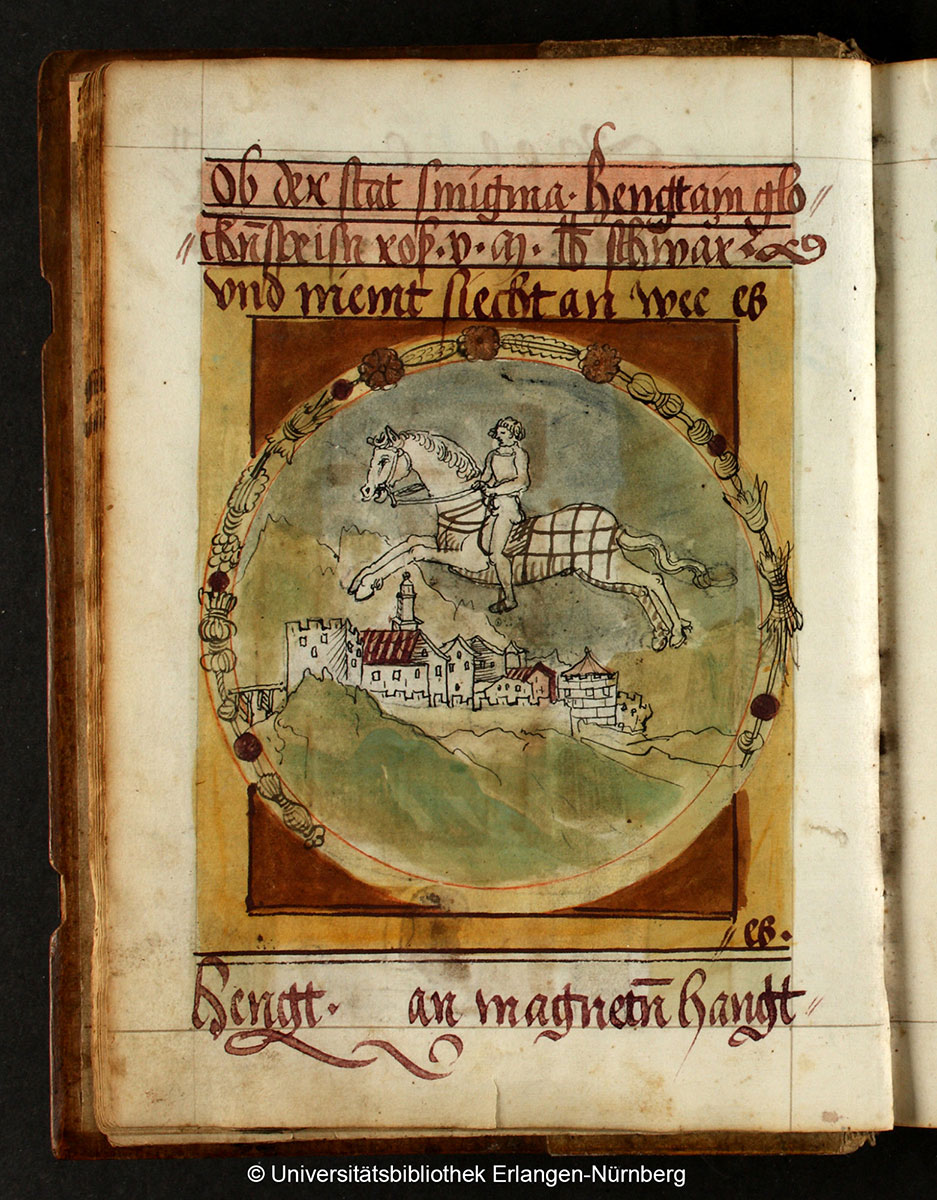 Ob der stat smigma· hengt ain glo//
//ckn̄speisn ros·v·m·℔ schwar
vnd niemt siecht an wee es
//es·
hengt· an magnetn̄ hangt//
© Universitätsbibliothek Erlangen-Nürnberg